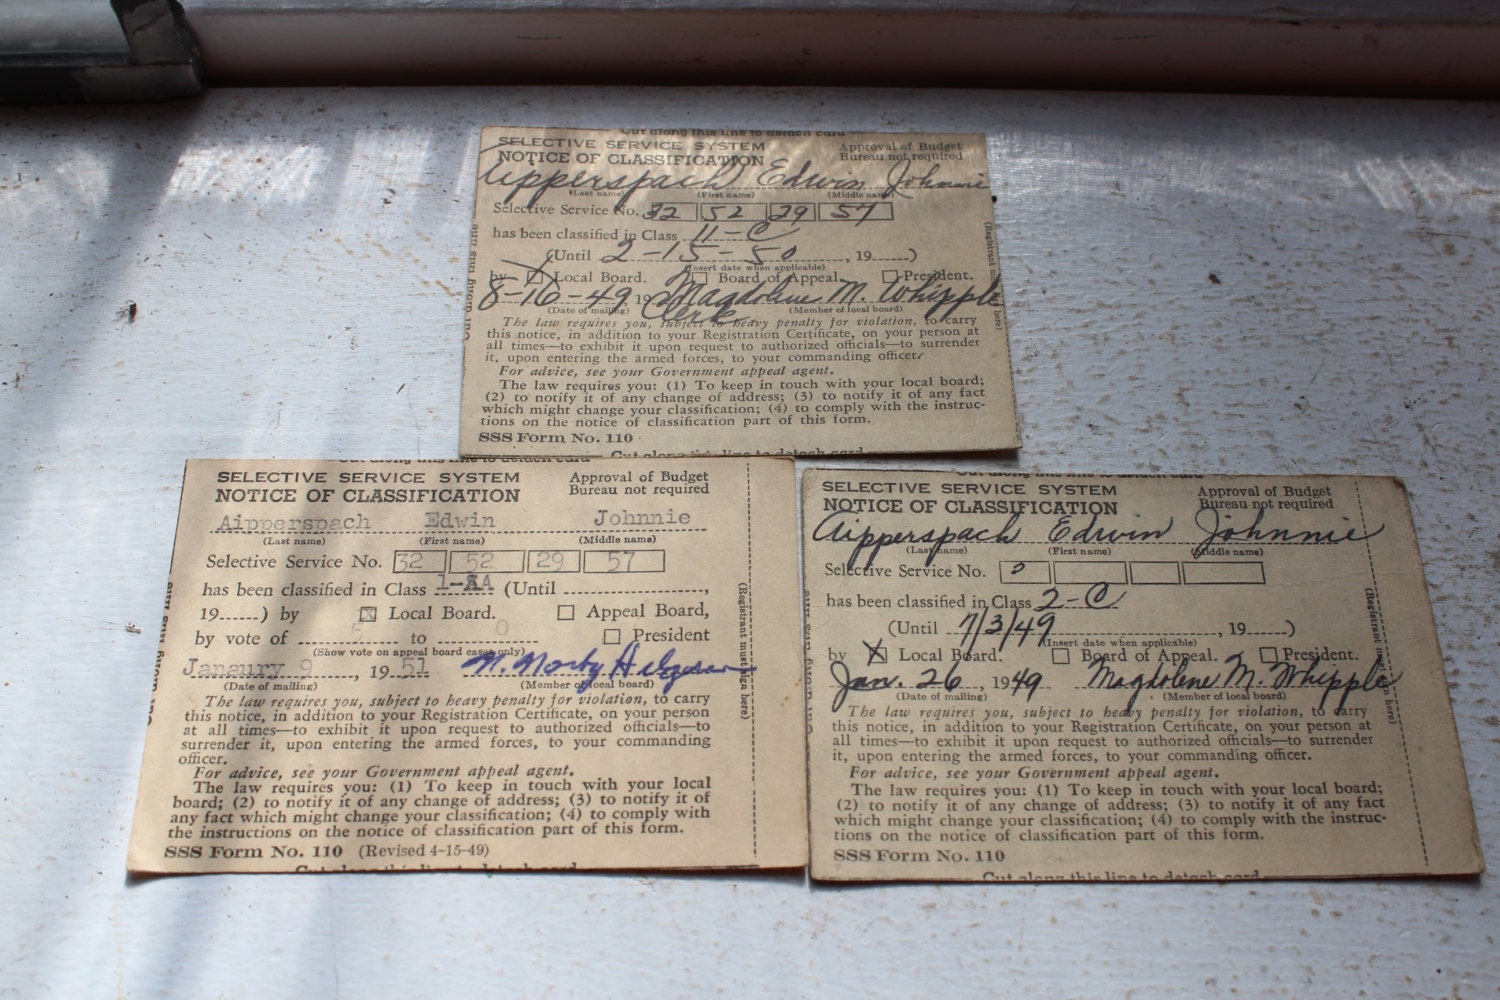 Cut along this line to detach card
SELECTIVE SERVICE SYSTEM Approval of Budget
NOTICE OF CLASSIFICATION Bureau not required
Aipperspach Edwin Johnnie
(Last name) (First name) (Middle name)
Selective Service No. 32 52 29 57
has been classified in Class 11-C
(Until 2-15-50, 19......)
(Insert date when applicable)
by Local Board. Board of Appeal. President.
8-16-49 19 Magdolene M. Whipple
Clerk
(Date of mailing) (Member of local board)
The law requires you, subject to heavy penalty for violation, to carry
this notice, in addition to your Registration Certificate, on your person at
all times—to exhibit it upon request to authorized officials—to surrender
it, upon entering the armed forces, to your commanding officer.
For advice, see your Government appeal agent.
The law requires you: (1) To keep in touch with your local board;
(2) to notify it of any change of address; (3) to notify it of any fact
which might change your classification; (4) to comply with the instruc-
tions on the notice of classification part of this form.
SSS Form No. 110
Cut along this line to detach card
Cut along this line
(Registrant must sign here)
Cut along this line to detach card
SELECTIVE SERVICE SYSTEM Approval of Budget
NOTICE OF CLASSIFICATION Bureau not required
Aipperspach Edwin Johnnie
(Last name) (First name) (Middle name)
Selective Service No. 32 52 29 57
has been classified in Class 1-A (Until ..............,
19......) by Local Board. Appeal Board,
by vote of 5 to 0 President
(Show vote on appeal board cases only)
Janaury 9, 1951
(Date of mailing) (Member of local board)
The law requires you, subject to heavy penalty for violation, to carry
this notice, in addition to your Registration Certificate, on your person
at all times—to exhibit it upon request to authorized officials—to
surrender it, upon entering the armed forces, to your commanding
officer.
For advice, see your Government appeal agent.
The law requires you: (1) To keep in touch with your local
board; (2) to notify it of any change of address; (3) to notify it of
any fact which might change your classification; (4) to comply with
the instructions on the notice of classification part of this form.
SSS Form No. 110 (Revised 4-15-49)
Cut along this line to detach card
(Registrant must sign here)
Cut along this line to detach card
SELECTIVE SERVICE SYSTEM Approval of Budget
NOTICE OF CLASSIFICATION Bureau not required
Aipperspach Edwin Johnnie
(Last name) (First name) (Middle name)
Selective Service No.
has been classified in Class 2-C
(Until 7/3/49, 19......)
(Insert date when applicable)
by Local Board. Board of Appeal. President.
Jan. 26, 1949 Magdolene M. Whipple
(Date of mailing) (Member of local board)
The law requires you, subject to heavy penalty for violation, to carry
this notice, in addition to your Registration Certificate, on your person at
all times—to exhibit it upon request to authorized officials—to surrender
it, upon entering the armed forces, to your commanding officer.
For advice, see your Government appeal agent.
The law requires you: (1) To keep in touch with your local board;
(2) to notify it of any change of address; (3) to notify it of any fact
which might change your classification; (4) to comply with the instruc-
tions on the notice of classification part of this form.
SSS Form No. 110
Cut along this line to detach card
(Registrant must sign here)